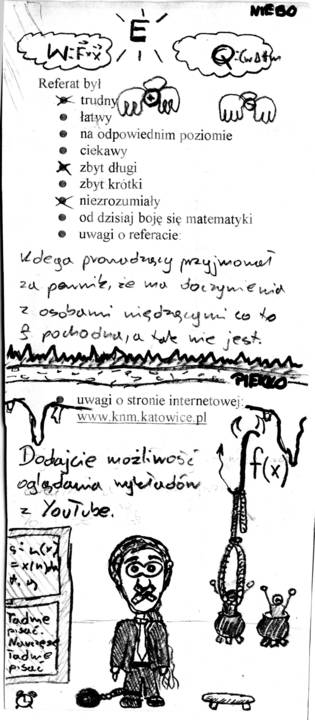 NIEBO
E
W=F·x
Q=cwΔtm
Referat był
trudny
łatwy
na odpowiednim poziomie
ciekawy
zbyt długi
zbyt krótki
niezrozumiały
od dzisiaj boję się matematyki
uwagi o referacie:
Kolega prowadzący przyjmował
za pewnik, że ma do czynienia
z osobami wiedzącymi co to
jest pochodna, a tak nie jest.
PIEKŁO
uwagi o stronie internetowej:
www.knm.katowice.pl
Dodajcie możliwość
oglądania wykładów
z YouTube.
f(x)
Ładnie
pisać.
Ładnie
pisać